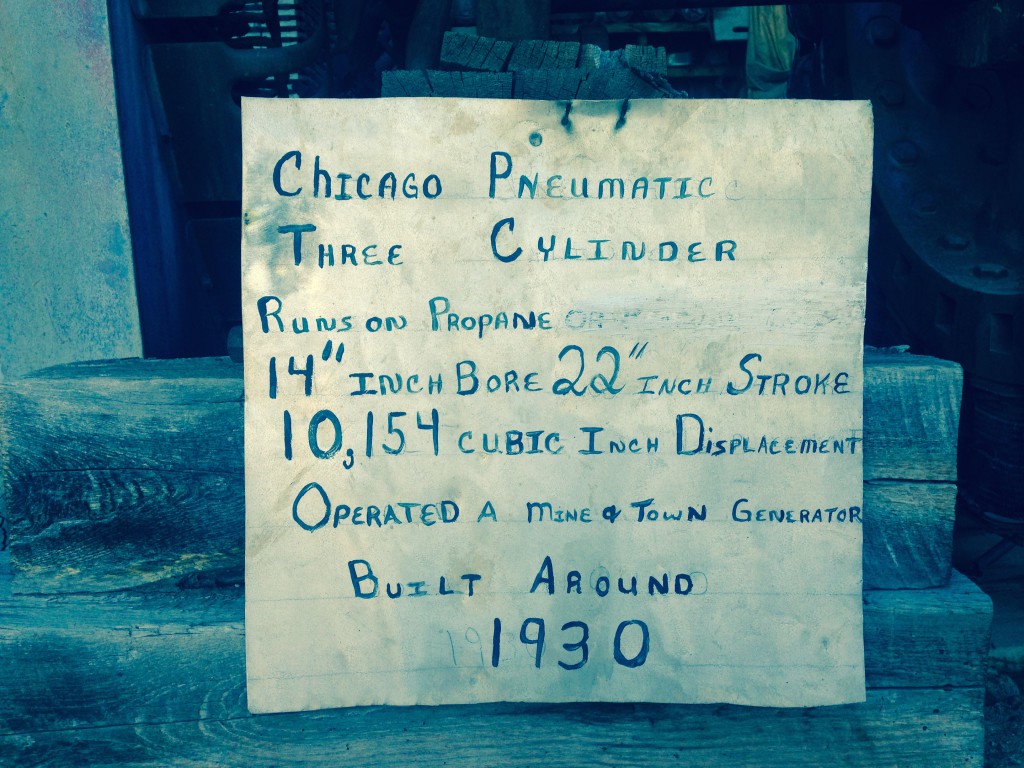 Chicago Pneumatic
Three Cylinder
Runs on Propane or
14" inch Bore 22" inch Stroke
10,154 cubic Inch Displacement
Operated a mine & Town Generator
Built Around
1930